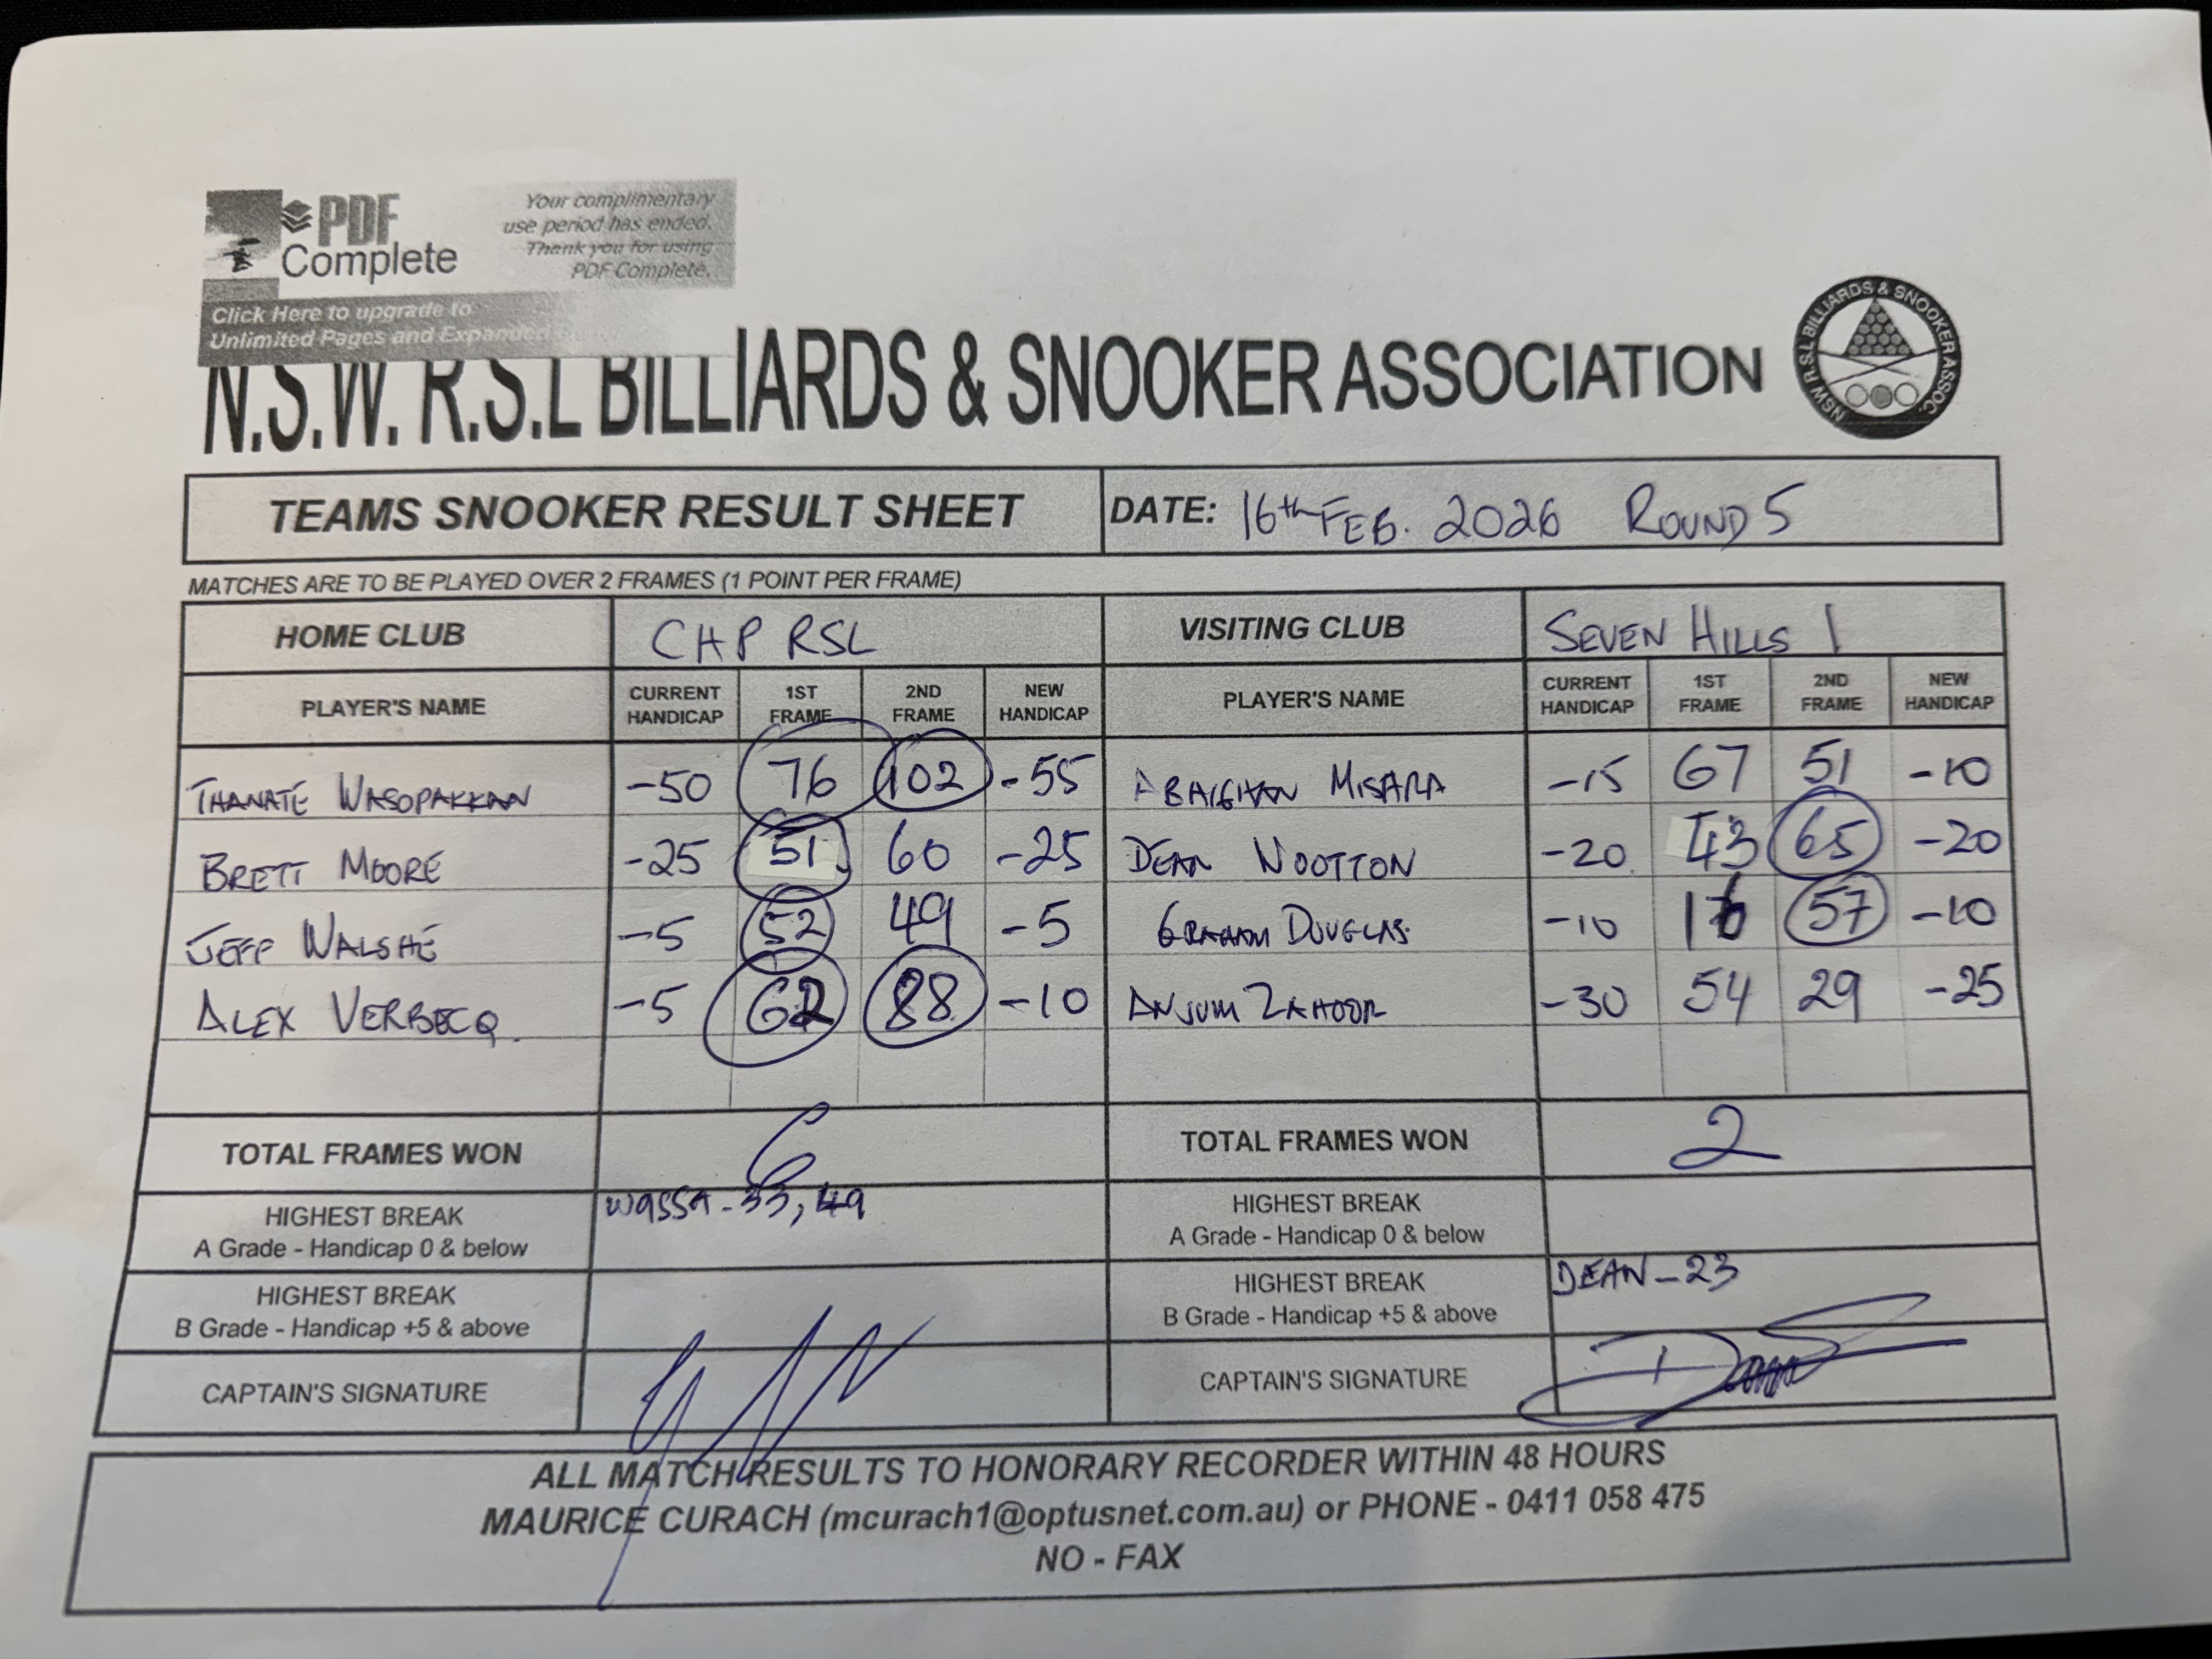 PDF Complete
Your complimentary
use period has ended.
Thank you for using
PDF Complete.
Click Here to upgrade to
Unlimited Pages and Expanded
N.S.W. R.S.L BILLIARDS & SNOOKER ASSOCIATION
NSW R.S.L BILLIARDS & SNOOKER ASSOC.
TEAMS SNOOKER RESULT SHEET DATE: 16th FEB. 2026 ROUND 5
MATCHES ARE TO BE PLAYED OVER 2 FRAMES (1 POINT PER FRAME)
HOME CLUB CHP RSL VISITING CLUB SEVEN HILLS 1
PLAYER'S NAME CURRENT HANDICAP 1ST FRAME 2ND FRAME NEW HANDICAP PLAYER'S NAME CURRENT HANDICAP 1ST FRAME 2ND FRAME NEW HANDICAP
THANATE WASOPAKKAN -50 76 102 -55 MISARA -15 67 51 -10
BRETT MOORE -25 51 60 -25 DEAN WOOTTON -20 43 65 -20
JEFF WALSHE -5 52 49 -5 GRAHAM DOUGLAS -10 57 -10
ALEX VERBECQ -5 62 88 -10 ANJUM ZAHOOR -30 54 29 -25
TOTAL FRAMES WON 6 TOTAL FRAMES WON 2
HIGHEST BREAK A Grade - Handicap 0 & below WASSA - 33, 49 HIGHEST BREAK A Grade - Handicap 0 & below
HIGHEST BREAK B Grade - Handicap +5 & above HIGHEST BREAK B Grade - Handicap +5 & above DEAN - 23
CAPTAIN'S SIGNATURE CAPTAIN'S SIGNATURE
ALL MATCH RESULTS TO HONORARY RECORDER WITHIN 48 HOURS
MAURICE CURACH (mcurach1@optusnet.com.au) or PHONE - 0411 058 475
NO - FAX